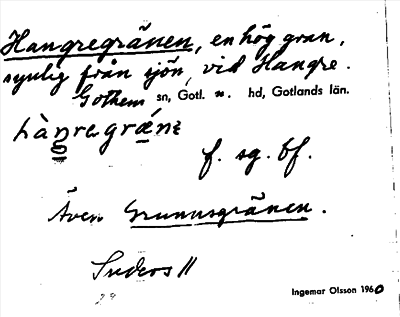 Hangregränen, en hög gran,
synlig från sjön, vid Hangre.
Gothem sn, Gotl. n. hd, Gotlands län.
f. sg. bf.
Även Grunnsgränen.
Suderos II
29
Ingemar Olsson 1960